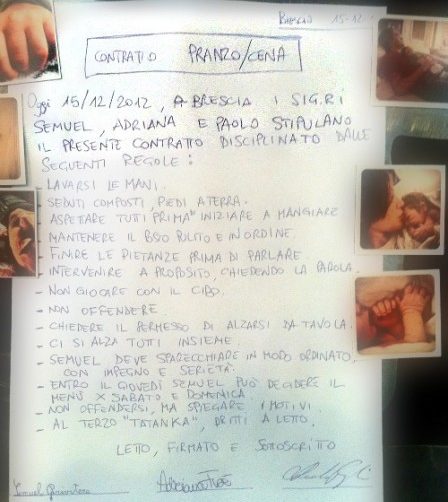 BRESCIA 15-12
CONTRATTO PRANZO/CENA
Oggi 15/12/2012, A BRESCIA I SIG.RI
SEMUEL, ADRIANA E PAOLO STIPULANO
IL PRESENTE CONTRATTO DISCIPLINATO DALLE
SEGUENTI REGOLE:
- LAVARSI LE MANI.
- SEDUTI COMPOSTI, PIEDI A TERRA.
- ASPETTARE TUTTI PRIMA DI INIZIARE A MANGIARE
- MANTENERE IL POSTO PULITO E IN ORDINE.
- FINIRE LE PIETANZE PRIMA DI PARLARE.
- INTERVENIRE A PROPOSITO, CHIEDENDO LA PAROLA.
- NON GIOCARE CON IL CIBO.
- NON OFFENDERE
- CHIEDERE IL PERMESSO DI ALZARSI DA TAVOLA.
- CI SI ALZA TUTTI INSIEME.
- SEMUEL DEVE SPARECCHIARE IN MODO ORDINATO,
CON IMPEGNO E SERIETÀ.
- ENTRO IL GIOVEDÌ SEMUEL PUÒ DECIDERE IL
MENÙ X SABATO E DOMENICA.
- NON OFFENDERSI, MA SPIEGARE I MOTIVI.
- AL TERZO "TATANKA", DRITTI A LETTO.
LETTO, FIRMATO E SOTTOSCRITTO
Semuel